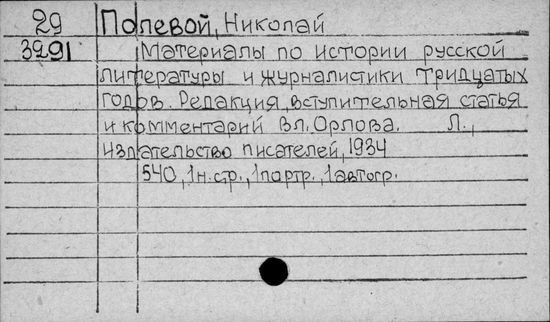 29 Полевой, Николай
3291 Материалы по истории русской
литературы и журналистики тридцатых
годов. Редакция, вступительная статья
и комментарий Вл. Орлова. Л.,
издательство писателей, 1934
540, 1н.стр., 1портр., 1автогр.